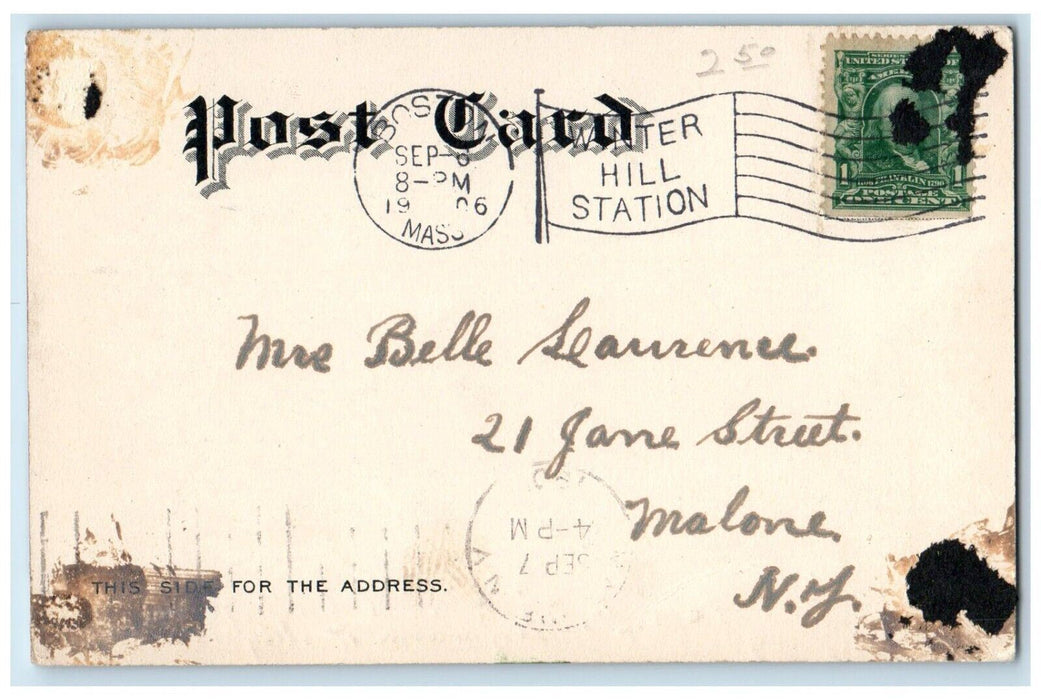 2 50
Post Card
BOSTON
SEP-6
8-PM
1906
MASS
WINTER
HILL
STATION
SERIES
UNITED STATES OF
AMERICA
1 FRANKLIN 1790 1
POSTAGE
ONE CENT
Mrs Belle Laurence.
21 Jane Street.
Malone.
N.Y.
4-PM
SEP 7
N.Y.
THIS SIDE FOR THE ADDRESS.